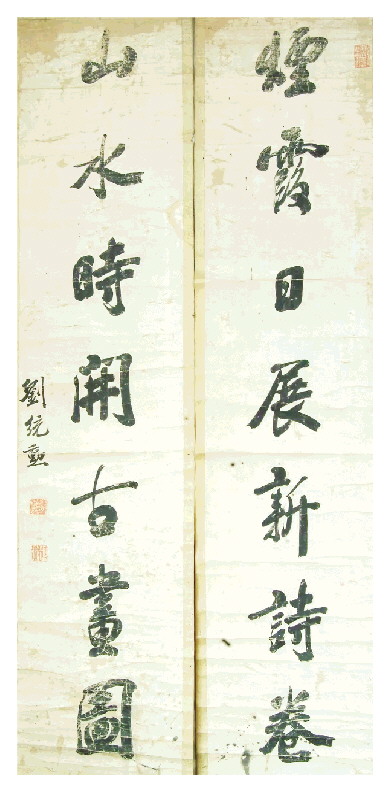 煙霞日展新詩卷
山水時開古畫圖
劉統勳